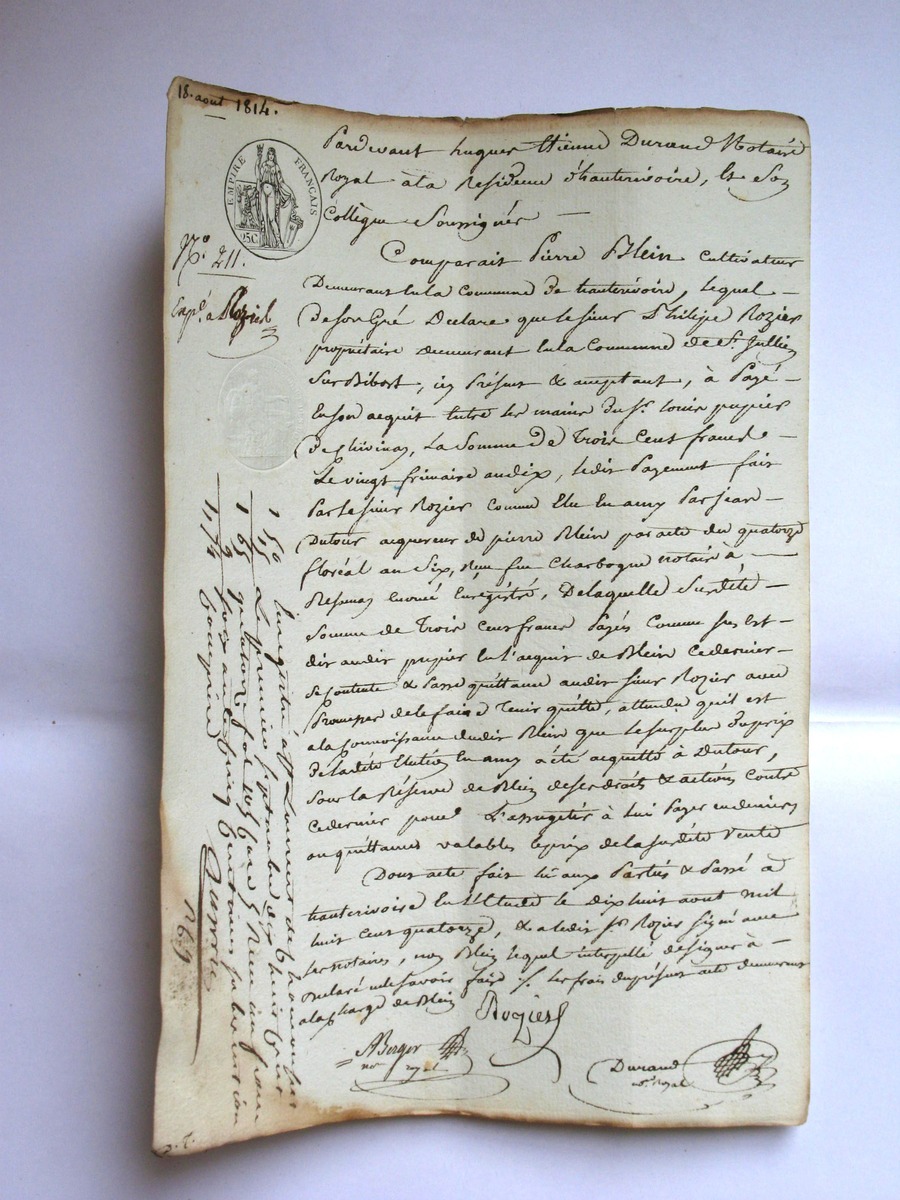 18. aout 1814.
EMPIRE FRANÇAIS
25C
N.º 211.
Exp.é a Rozier
Pardevant hugues Etienne Durand Notaire
Royal à la Residence d'hauterivoire, Et Son
Collègue Soussignés
Comparait Pierre Blein Cultivateur
Demeurant en la Commune de hauterivoire, lequel
de son Gré Declare que le sieur Philipe Rozier
propriétaire demeurant en la Commune de St. Jullien
Sur Bibost, icy Présent & aceptant, à Payé
En son acquit Entre les mains du Sr. louis pupier
de chivinay, La Somme de Trois Cent francs
Le vingt frimaire an dix, ledit Payement fait
Par le sieur Rozier Comme Elu En amy Par jean
Dutour acquereur de pierre Blein par acte du quatorze
floréal an Six, Reçu feu Charbogne notaire à
Enregistré, De laquelle Surdite
Somme de Trois Cent francs Payés Comme sus Est
dit audit pupier En l'acquit de Blein Ce dernier
se Contente & Passe quittance audit sieur Rozier avec
Promesse de le faire Tenir quitte, attendu qu'il est
a la Connoissance dudit Blein que le surplus du prix
de ladite Election En amy a été acquitté à Dutour,
Sous la Réserve de Blein de ses droits & actions Contre
ce dernier pour L'assugetir à lui Payer en deniers
ou quittances valables le prix de la surdite Vente
Dont acte fait lu aux Parties & Passé à
hauterivoire En l'Etude le dix huit aout mil
huit Cent quatorze, & a ledit Sr. Rozier signé avec
les notaires, non Blein lequel interpellé de signer à
Declaré ne le savoir faire ./. les frais du présent acte demeurent
a la charge de Blein
Rozier
ABerger
nre royal
Durand
nre. royal
1 50
15
1 65
9
1,74
Enregistré à
Le premier septembre dix huit cent
quatorze fol. Reçu un franc